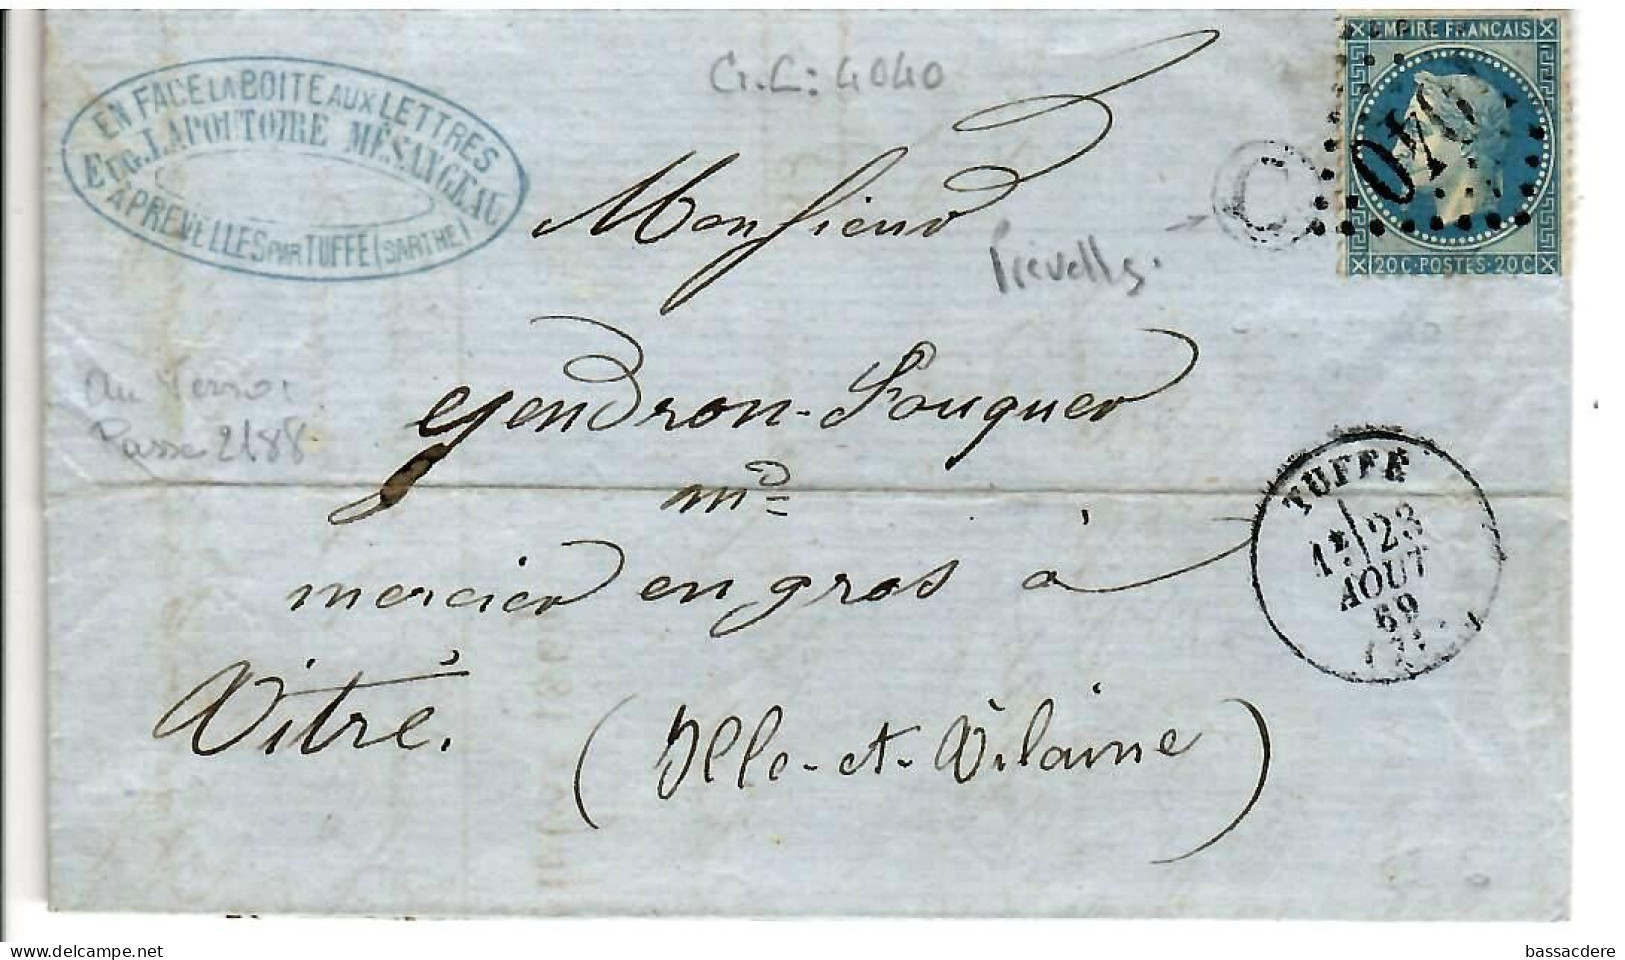 EN FACE LA BOITE AUX LETTRES
EUG. LAPOUTOIRE MÉSANGEAU
À PREVELLES PAR TUFFÉ (SARTHE)
G.C: 4040
EMPIRE FRANÇAIS
4040
20 C · POSTES · 20 C
C
Prevelles.
Monsieur
Gendron-Fouquer
md
mercier en gros à
Vitré.
(Ille-et-Vilaine)
au verso:
Passe 2188
TUFFÉ
1e 23
AOUT
69
bassacdere